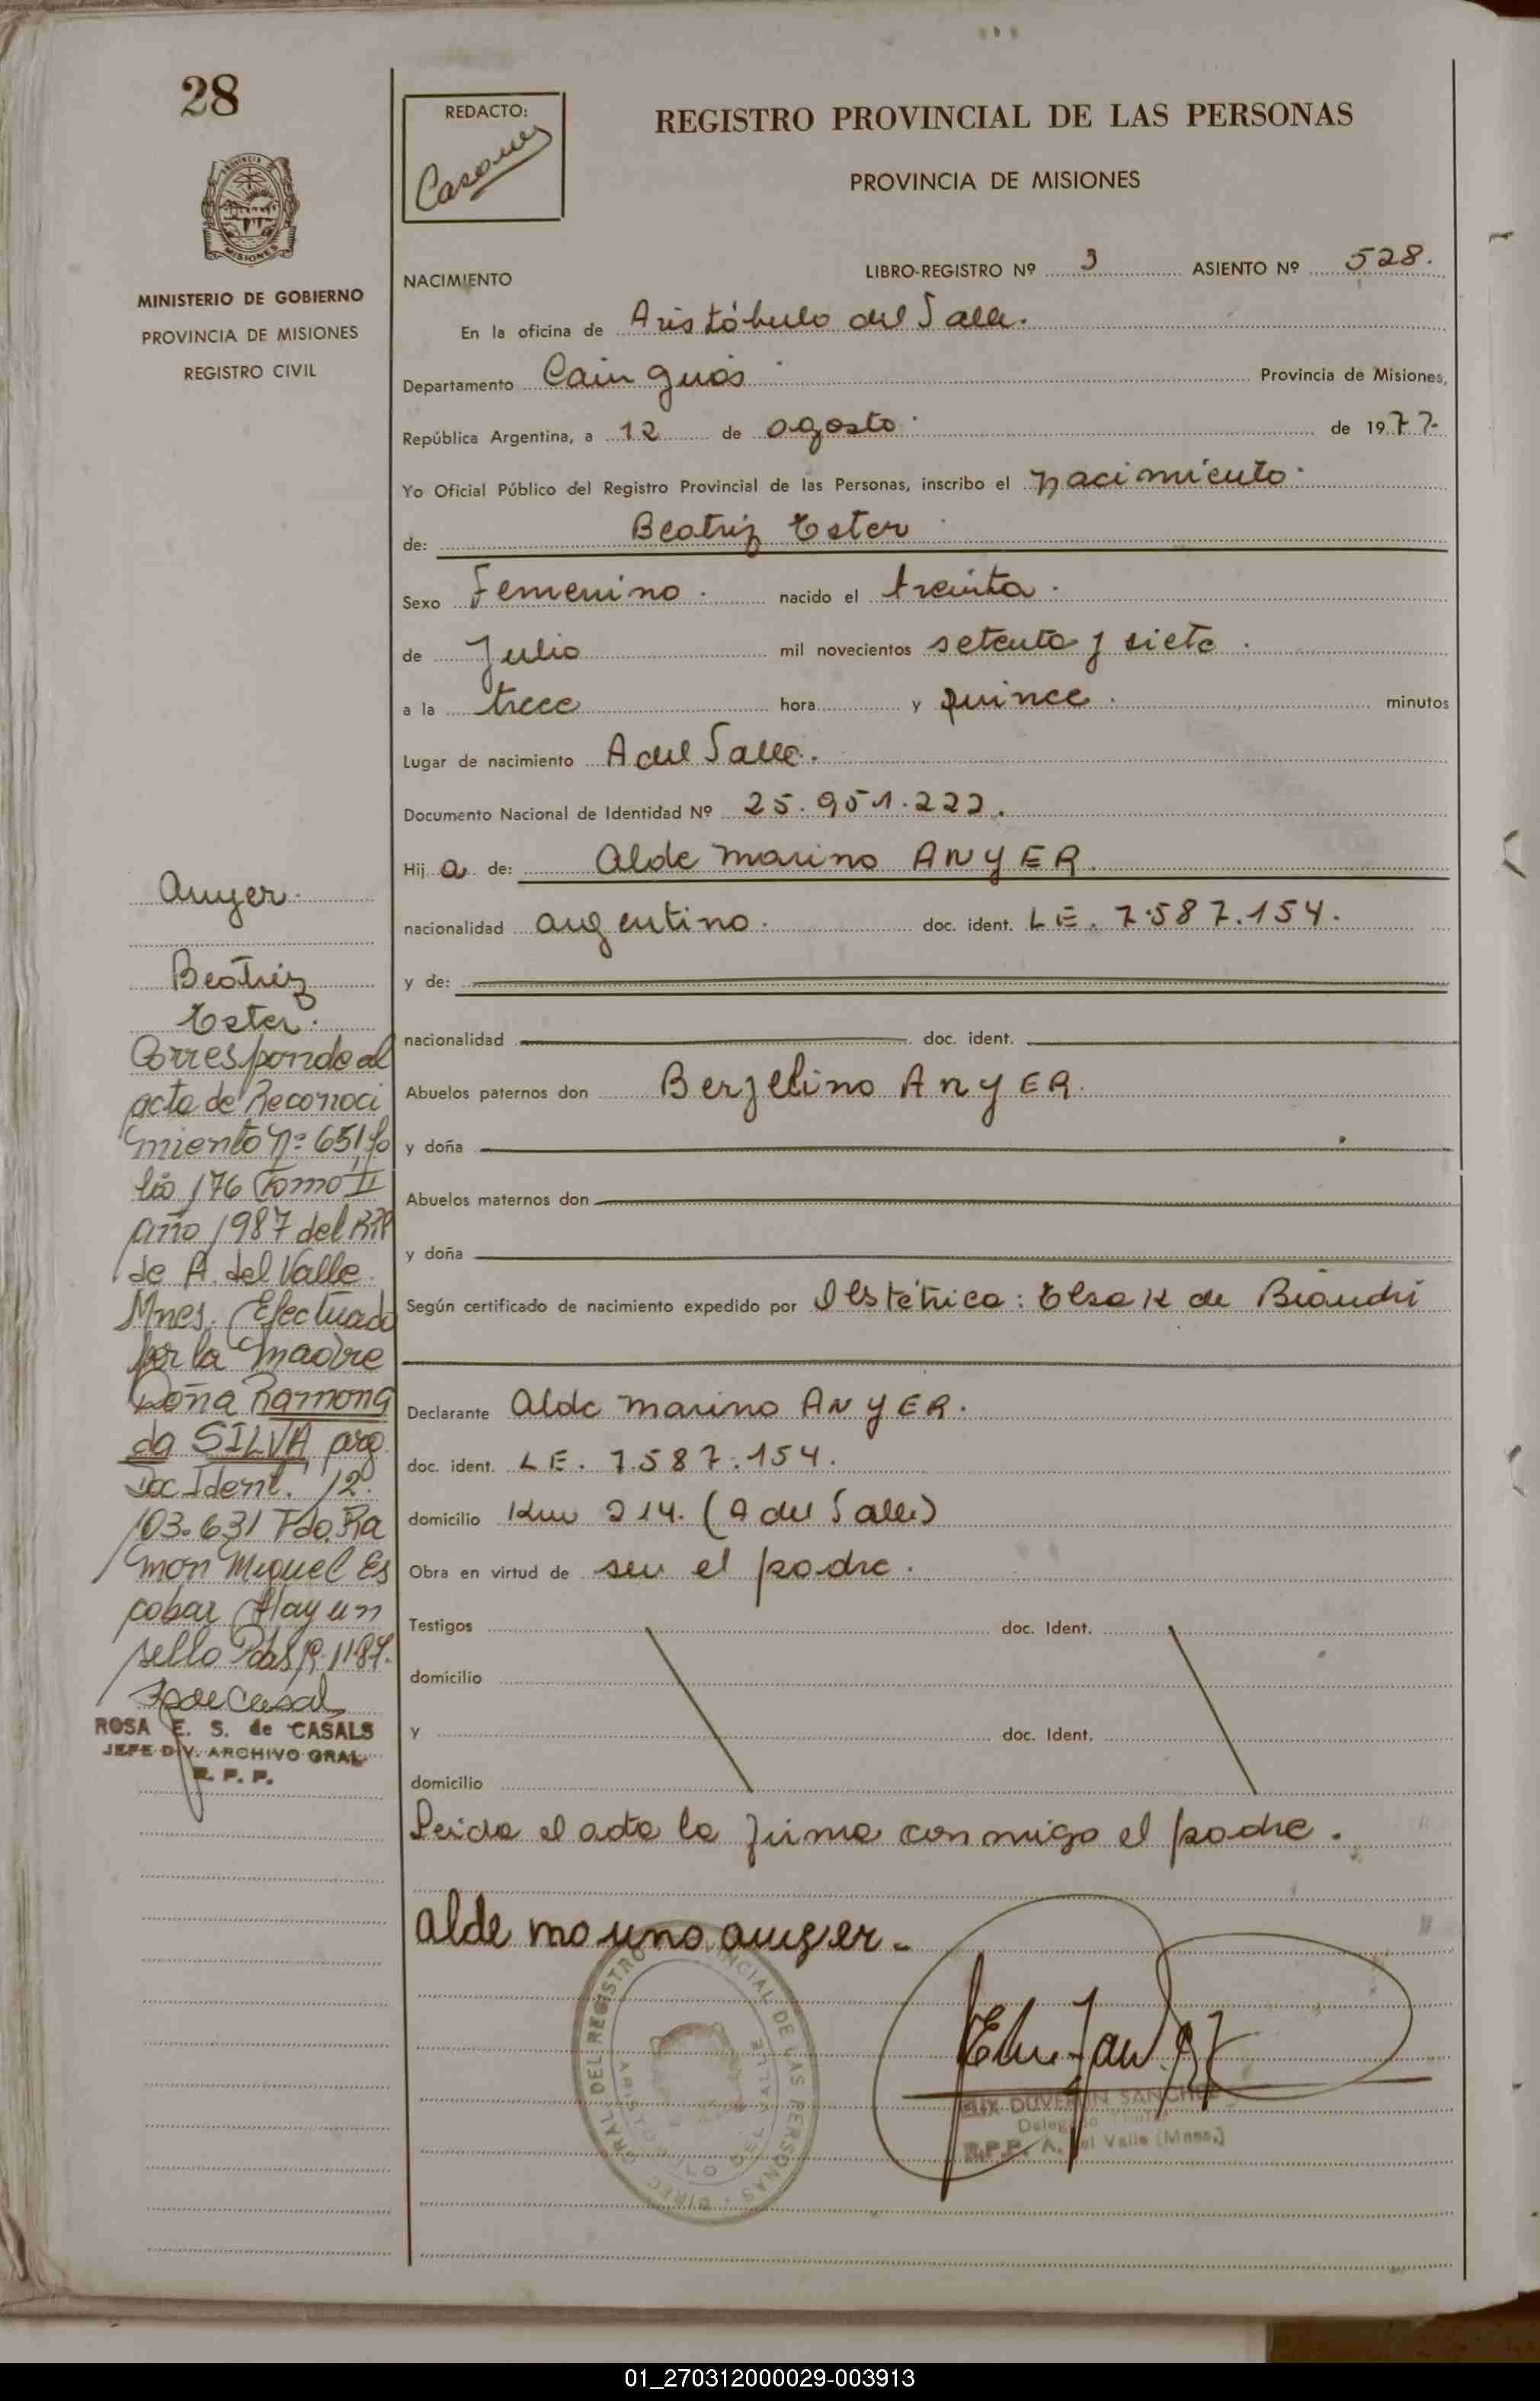 28
REDACTO:
REGISTRO PROVINCIAL DE LAS PERSONAS
PROVINCIA DE MISIONES
PROVINCIA
MISIONES
MINISTERIO DE GOBIERNO
PROVINCIA DE MISIONES
REGISTRO CIVIL
NACIMIENTO
LIBRO-REGISTRO Nº 3 ASIENTO Nº 528.
En la oficina de Aristóbulo del Valle.
Departamento Cainguás Provincia de Misiones,
República Argentina, a 12 de agosto de 1977-
Yo Oficial Público del Registro Provincial de las Personas, inscribo el nacimiento
de: Beatriz Ester
Sexo Femenino. nacido el treinta.
de Julio mil novecientos setenta y siete.
a la trece hora y quince. minutos
Lugar de nacimiento A del Valle.
Documento Nacional de Identidad Nº 25.951.222.
Hij a de: Alde Marino ANYER.
nacionalidad argentino. doc. ident. LE. 7.587.154.
y de:
nacionalidad doc. ident.
Abuelos paternos don Berjelino ANYER.
y doña
Abuelos maternos don
y doña
Según certificado de nacimiento expedido por Obstétrica: Elsa K de Bianchi
Declarante Alde Marino ANYER.
doc. ident. LE. 7.587.154.
domicilio Km 214. (A del Valle)
Obra en virtud de ser el padre.
Testigos doc. Ident.
domicilio
y doc. Ident.
domicilio
Leida el acta la firma conmigo el padre.
alde marino anyer.
Anyer.
Beatriz
Ester.
Corresponde al
acta de Reconoci
miento Nº 651 fo
lio 176 Tomo II
año 1987 del RPP
de A. del Valle
Mnes. Efectuado
por la madre
Doña Ramona
da SILVA, arg.
Doc. Ident. 12.
103.631 Fdo. Ra
mon Miguel Es
cobar Hay un
sello
ROSA E. S. de CASALS
JEFE DIV. ARCHIVO GRAL.
R. P. P.
DIREC. GRAL. DEL REGISTRO PROVINCIAL DE LAS PERSONAS
ARISTOBULO DEL VALLE
SANCHEZ
R.P.P. A. del Valle (Mnes.)
01_270312000029-003913